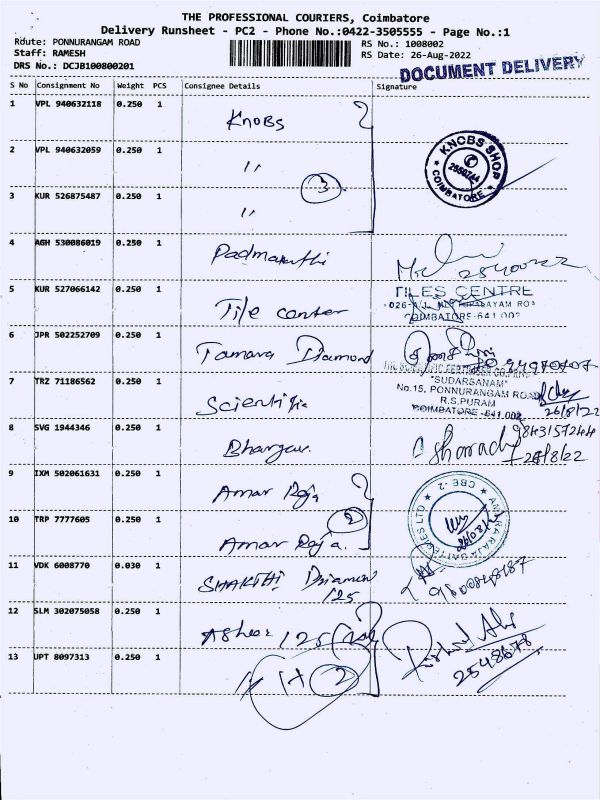 THE PROFESSIONAL COURIERS, Coimbatore
Delivery Runsheet - PC2 - Phone No.:0422-3505555 - Page No.:1
Route: PONNURANGAM ROAD
Staff: RAMESH
DRS No.: DCJB100800201
RS No.: 1008002
RS Date: 26-Aug-2022
DOCUMENT DELIVERY
S No Consignment No Weight PCS Consignee Details Signature
1 VPL 940632118 0.250 1 KNOBS
2 VPL 940632059 0.250 1 "
3
KNOBS SHOP
2550744
COIMBATORE
3 KUR 526875487 0.250 1 "
4 AGH 530086019 0.250 1
5 KUR 527066142 0.250 1 Tile center
TILES CENTRE
COIMBATORE-641 002
6 JPR 502252709 0.250 1 Tamara Diamond
7 TRZ 71186562 0.250 1 Scientific
"SUDARSANAM"
No.15, PONNURANGAM ROAD
R.S.PURAM
COIMBATORE-641 002
26/8/22
8 SVG 1944346 0.250 1
9843157244
9 IXM 502061631 0.250 1 Amar Raja
2
AMARA RAJA BATTERIES LTD
CBE-2
10 TRP 7777605 0.250 1 Amar Raja.
11 VDK 6008770 0.030 1 SHAKTHI
125
12 SLM 302075058 0.250 1 125
13 UPT 8097313 0.250 1 "
2548678